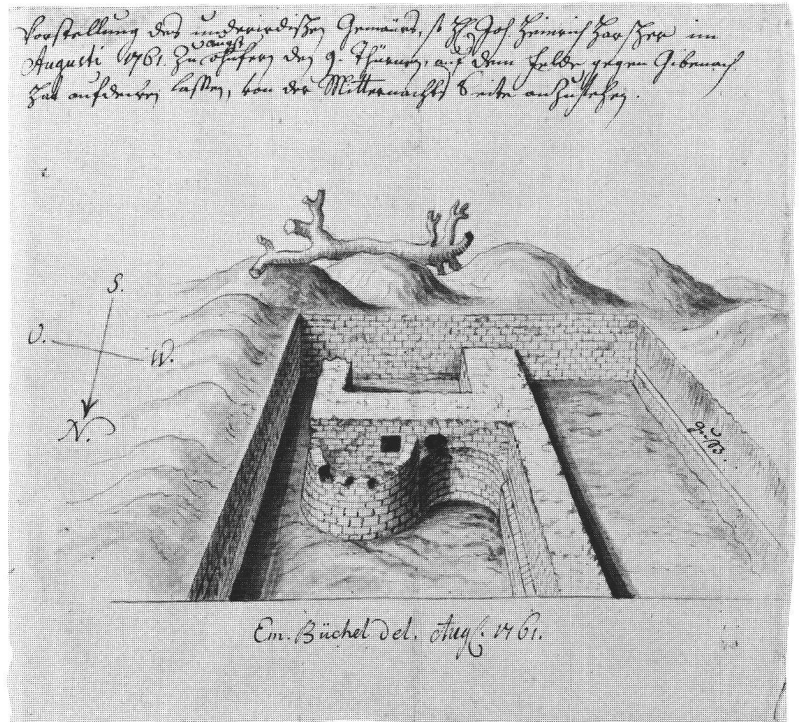 Vorstellung des underirdischen Gemäurs, so H. Joh. Heinrich Harscher im
Augusti 1761. Zu Augst ohnfern den 9. Thürnen, auf dem Felde gegen Gibenach
hat aufdecken lassen, von der Mitternacht Seite anzusehen.
S.
O.
W.
N.
Em. Büchel Del. Aug. 1761.